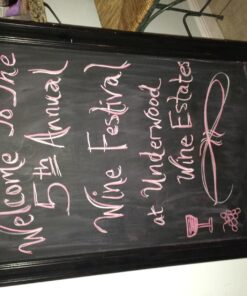 Welcome to the
5th Annual
Wine Festival
at Underwood
Wine Estates